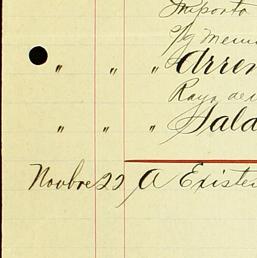 Importo
s/g Memo
" " " Arren
Rayo del
" " " Sald
Novbre 22 A Existen